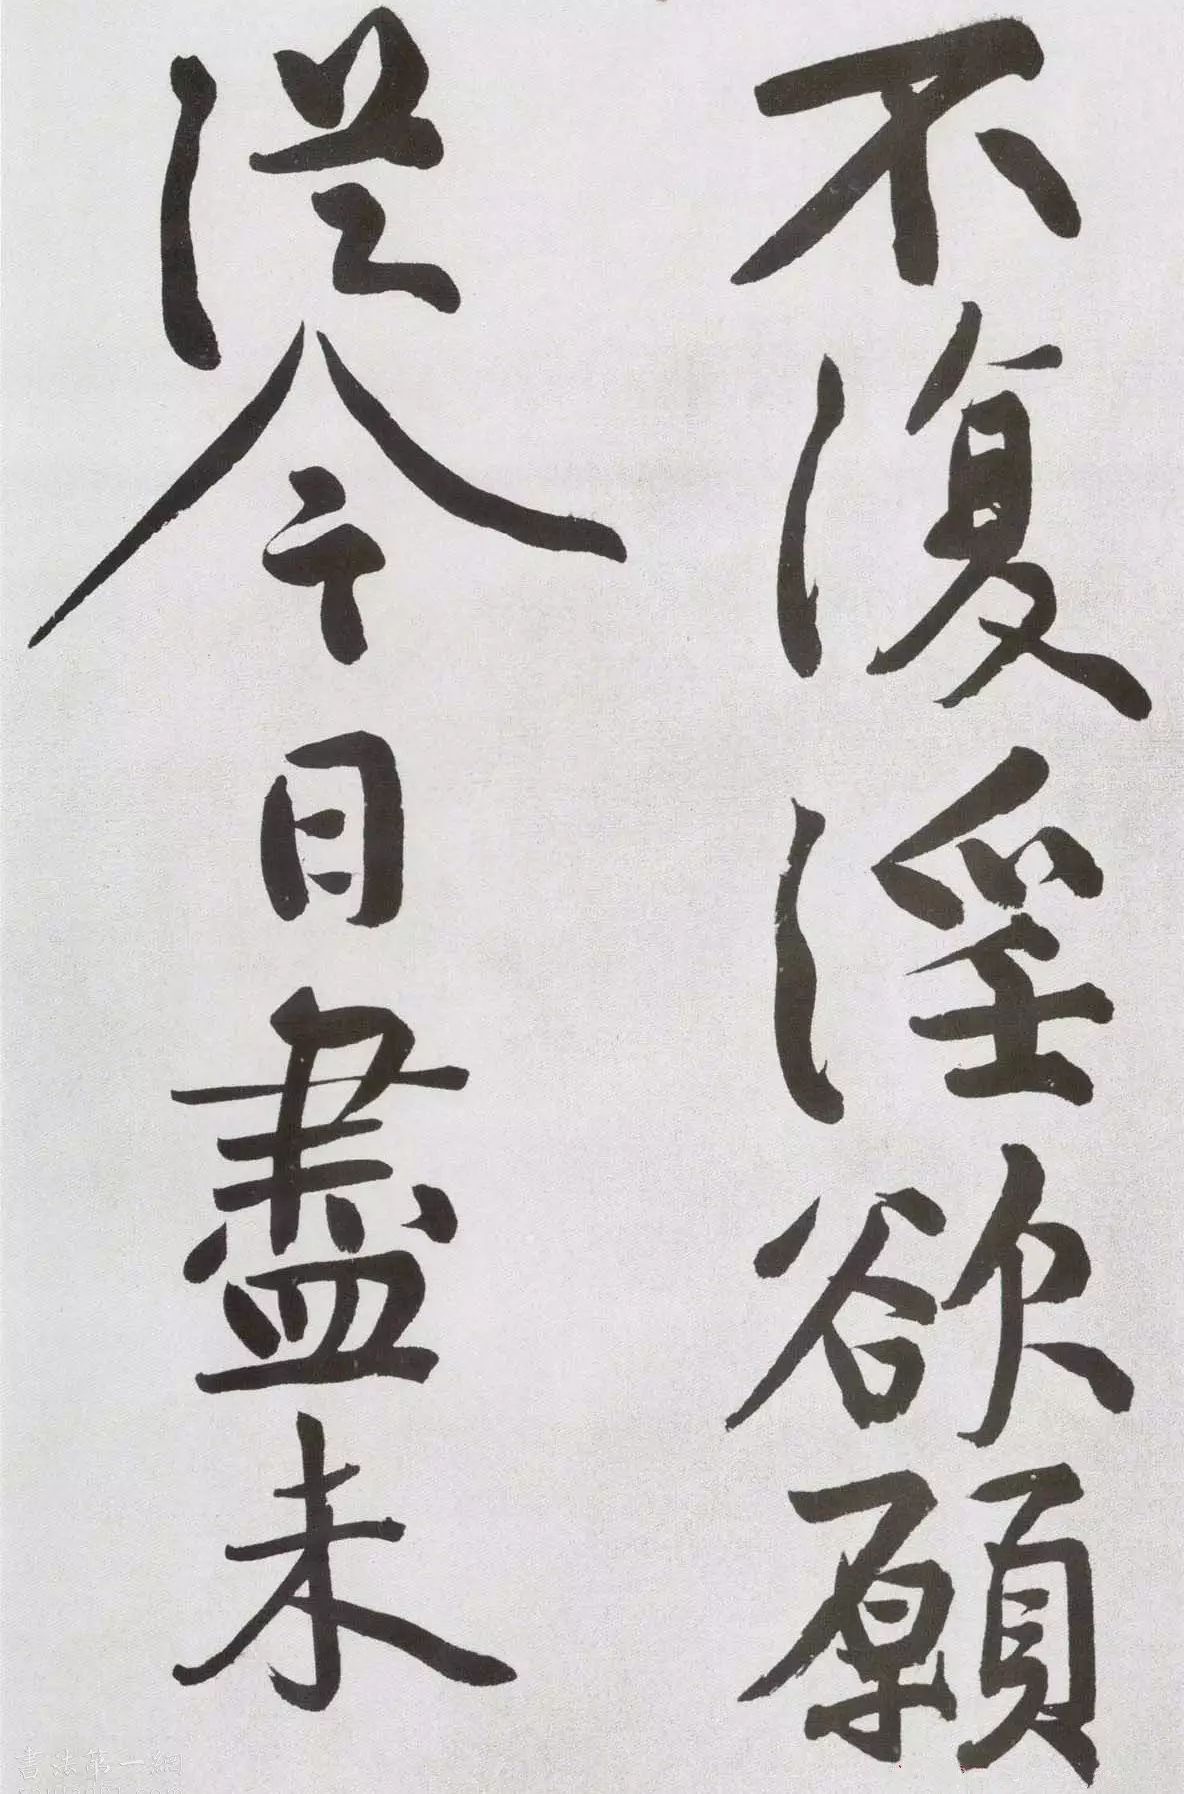 不復淫欲願
從今日盡未
書法第一網